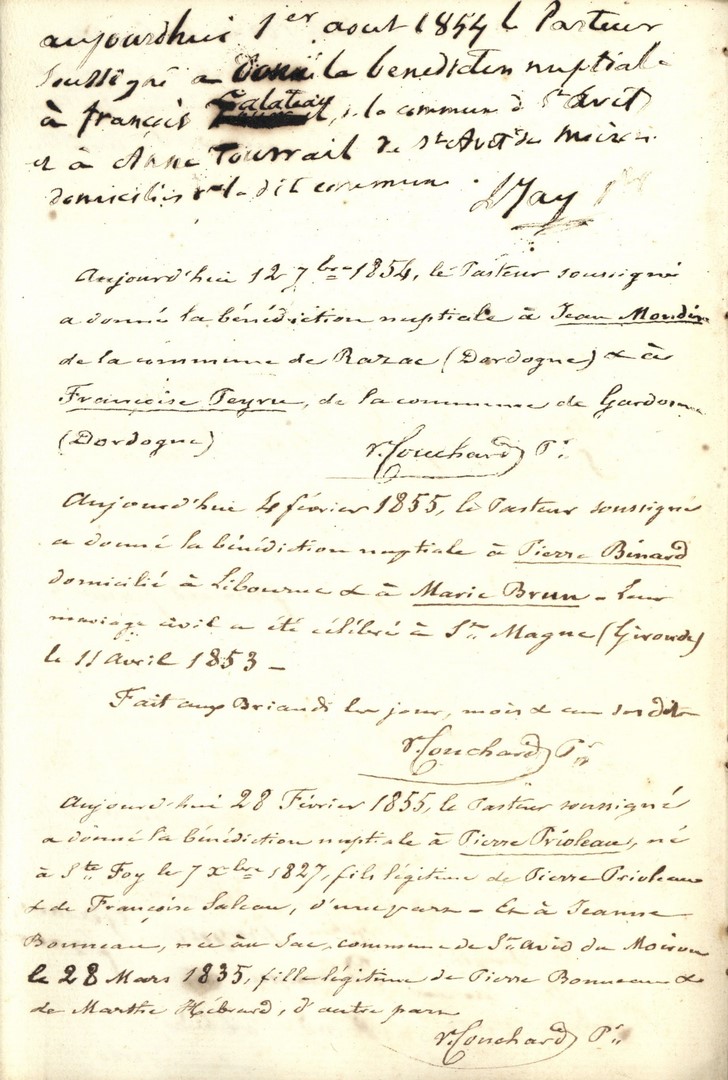 aujourdhui 1er aout 1854 le Pasteur
soussigné a donné la benediction nuptiale
à françois Galateau, de la commune de St Avit
et à Anne Tourrail de St Avit du moiron
domiciliés sur la dit commune.
Aujourd'hui 12 7bre 1854, le Pasteur soussigné
a donné la bénédiction nuptiale à Jean
de la commune de Razac (Dordogne) & à
Françoise Teyru, de la commune de Gardonne
(Dordogne)
r. Couchard Pr.
Aujourd'hui 4 février 1855, le Pasteur soussigné
a donné la bénédiction nuptiale à Pierre Bénard
domicilié à Libourne & à Marie Brun - Leur
mariage civil a été célébré à St. Magne (Gironde)
le 11 avril 1853 -
Fait aux Briands les jour, mois & an susdits
r. Couchard Pr.
Aujourd'hui 28 Février 1855, le Pasteur soussigné
a donné la bénédiction nuptiale à Pierre Prioleau, né
à Ste Foy le 7 Xbre 1827, fils légitime de Pierre Prioleau
& de Françoise Saleau, d'une part - Et à Jeanne
Bonneau, née au Sac, commune de St. Avid du Moiron
le 28 Mars 1835, fille légitime de Pierre Bonneau &
de Marthe Hébrard, d'autre part
r. Couchard Pr.